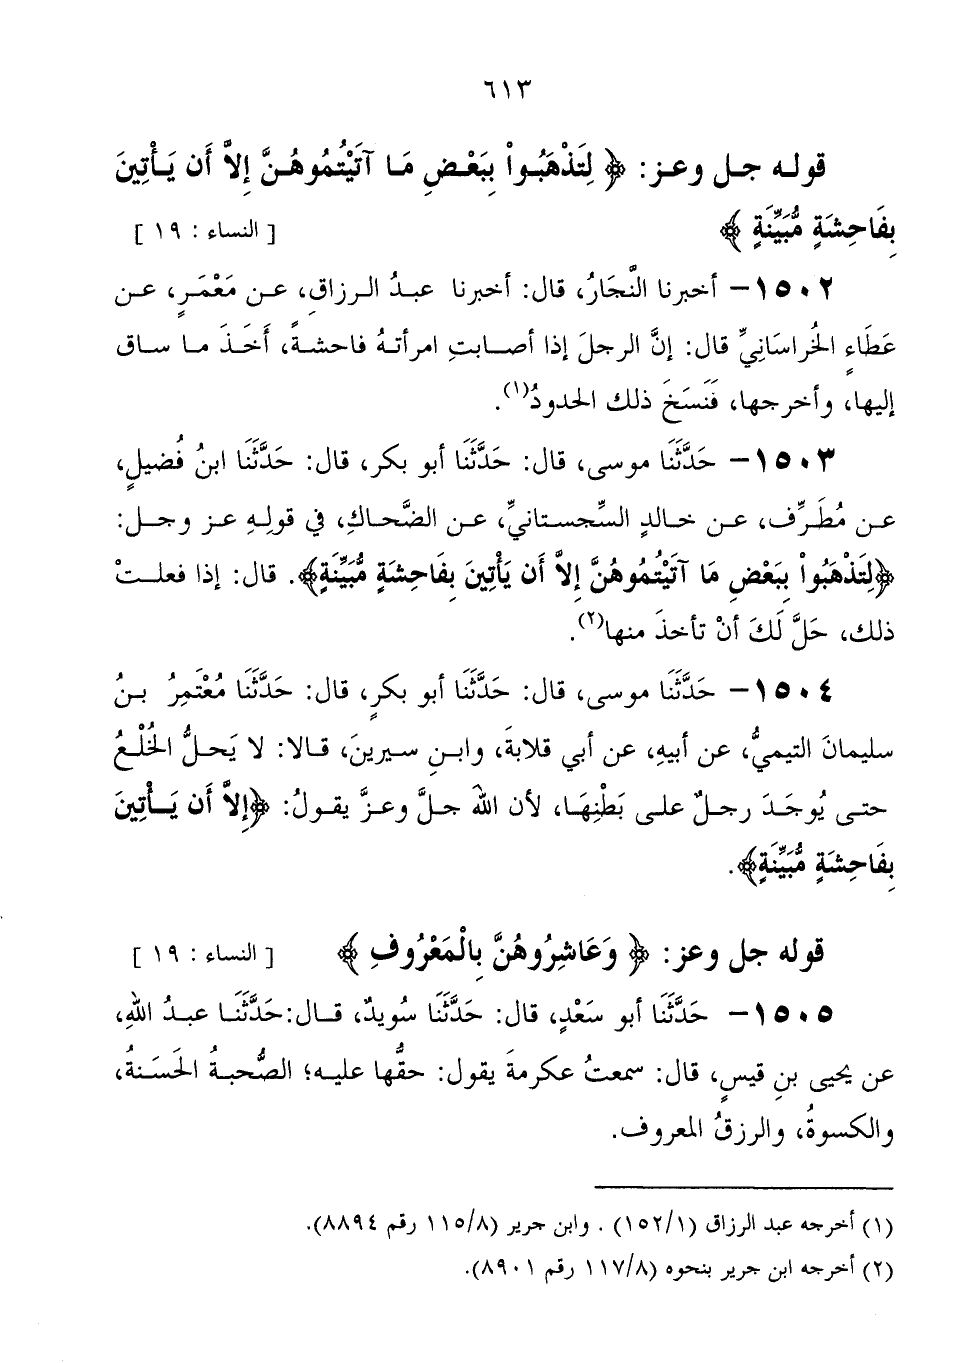 ٦١٣
قوله جل وعز: ﴿ لِتَذْهَبُواْ بِبَعْضِ مَا آتَيْتُمُوهُنَّ إِلاَّ أَن يَأْتِينَ
بِفَاحِشَةٍ مُّبَيِّنَةٍ ﴾ [ النساء : ١٩ ]
١٥٠٢- أخبرنا النَّجَارُ، قال: أخبرنا عبدُ الرزاقِ، عن مَعْمَرٍ، عن
عَطَاءٍ الخُراسَانِيِّ قال: إنَّ الرجلَ إذا أصابتِ امرأتهُ فاحشةً، أَخَذَ ما ساق
إليها، وأخرجها، فَنَسَخَ ذلك الحدودُ(١).
١٥٠٣- حَدَّثَنَا موسى، قال: حَدَّثَنَا أبو بكر، قال: حَدَّثَنَا ابنُ فُضيلٍ،
عن مُطَرِّف، عن خالدٍ السِّجستانيِّ، عن الضَّحاكِ، في قولِهِ عز وجل:
﴿لِتَذْهَبُواْ بِبَعْضِ مَا آتَيْتُمُوهُنَّ إِلاَّ أَن يَأْتِينَ بِفَاحِشَةٍ مُّبَيِّنَةٍ﴾. قال: إذا فعلتْ
ذلك، حَلَّ لَكَ أنْ تأخذَ منها(٢).
١٥٠٤- حَدَّثَنَا موسى، قال: حَدَّثَنَا أبو بكرٍ، قال: حَدَّثَنَا مُعْتَمِرُ بنُ
سليمانَ التيميُّ، عن أبيهِ، عن أبي قلابةَ، وابنِ سيرينَ، قالا: لا يَحلُّ الخُلْعُ
حتى يُوجَدَ رجلٌ على بَطْنِهَا، لأن اللهَ جلَّ وعزَّ يقولُ: ﴿إِلاَّ أَن يَأْتِينَ
بِفَاحِشَةٍ مُّبَيِّنَةٍ﴾.
قوله جل وعز: ﴿ وَعَاشِرُوهُنَّ بِالْمَعْرُوفِ ﴾ [ النساء : ١٩ ]
١٥٠٥- حَدَّثَنَا أبو سَعْدٍ، قال: حَدَّثَنَا سُويدٌ، قال:حَدَّثَنَا عبدُ اللهِ،
عن يحيى بنِ قيسٍ، قال: سمعتُ عكرمةَ يقول: حقُّها عليه؛ الصُّحبةُ الحَسَنةُ،
والكسوةُ، والرزقُ المعروف.
(١) أخرجه عبد الرزاق (١٥٢/١) . وابن جرير (١١٥/٨ رقم ٨٨٩٤).
(٢) أخرجه ابن جرير بنحوه (١١٧/٨ رقم ٨٩٠١).